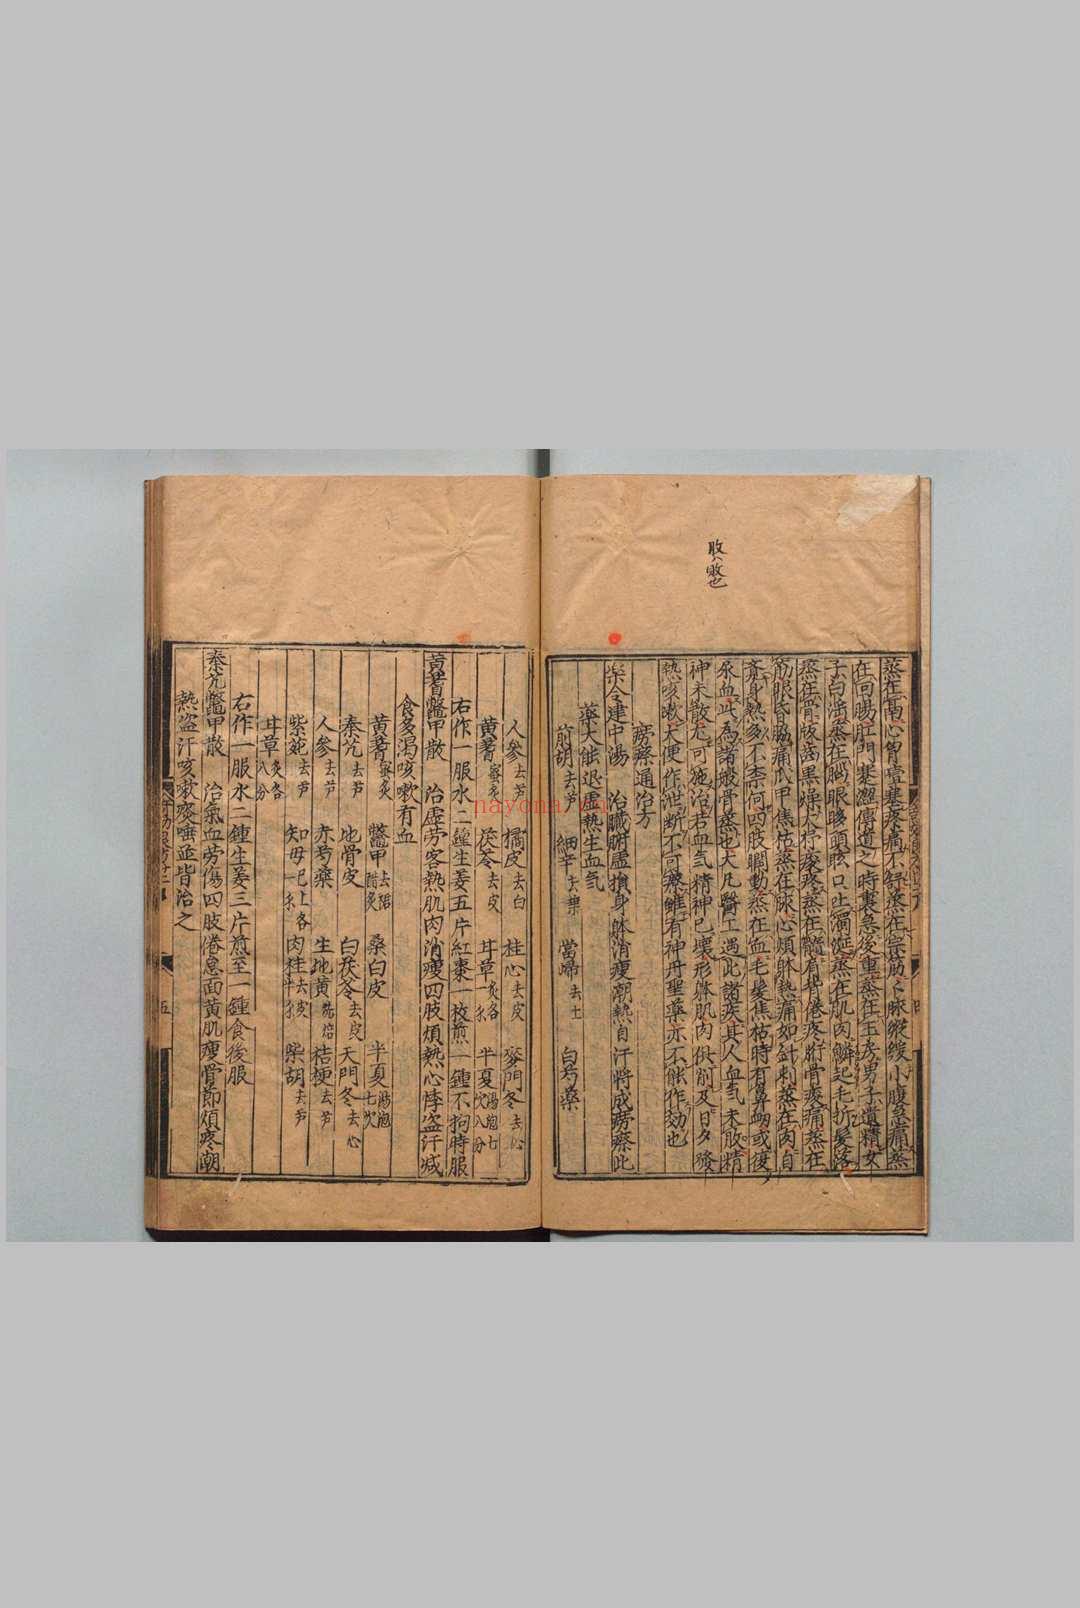 敗
蒸在鬲心胷噎塞疼痛不舒蒸在宗筋筋脉縱緩小腹急痛蒸
在回腸肛門塞澀傳道之時裏急後重蒸在玉房男子遺精女
子白淫蒸在腦眼眵頭眩口吐濁涎蒸在肌肉鱗起毛折髮落
蒸在骨版齒黑燥大杼痠疼蒸在髓肩背倦疼胻骨痠痛蒸在
筋眼昏脇痛爪甲焦枯蒸在脉心煩躰熱痛如針刺蒸在肉自
身熱多不柰何四肢瞤動蒸在血毛髮焦枯時有鼻衂或復
尿血此為諸般骨蒸也大凡醫工遇此諸疾其人血氣未敗精
神未散危可施治若血氣精神已壞形躰肌肉俱削及日夕發
熱咳嗽大便作泄断不可療雖有神丹聖藥亦不能作効也
癆瘵通治方
樂令建中湯 治臟腑虛損身躰消瘦潮熱自汗將成癆瘵此
藥大能退虛熱生血氣
前胡去芦 細辛去葉 當歸去土 白芍藥
人參去芦 橘皮去白 桂心去皮 麥門冬去心
黄蓍蜜炙 茯苓去皮 甘草炙各一兩 半夏湯泡七次八分
右作一服水二鍾生姜五片紅棗一枚煎一鍾不拘時服
黄蓍鱉甲散 治虛劳客熱肌肉消瘦四肢煩熱心悸盗汗减
食多渴咳嗽有血
黄蓍蜜炙 鱉甲去裙醋炙 桑白皮 半夏湯泡七次
秦艽去芦 地骨皮 白茯苓去皮 天門冬去心
人參去芦 赤芍藥 生地黄洗焙 桔梗去芦
紫菀去芦 知母已上各一兩 肉桂去皮半兩 柴胡去芦
甘草炙各八分
右作一服水二鍾生姜三片煎至一鍾食後服
秦艽鱉甲散 治氣血劳傷四肢倦怠面黄肌瘦骨節煩疼潮
熱盗汗咳嗽痰唾並皆治之
五
nayona.cn